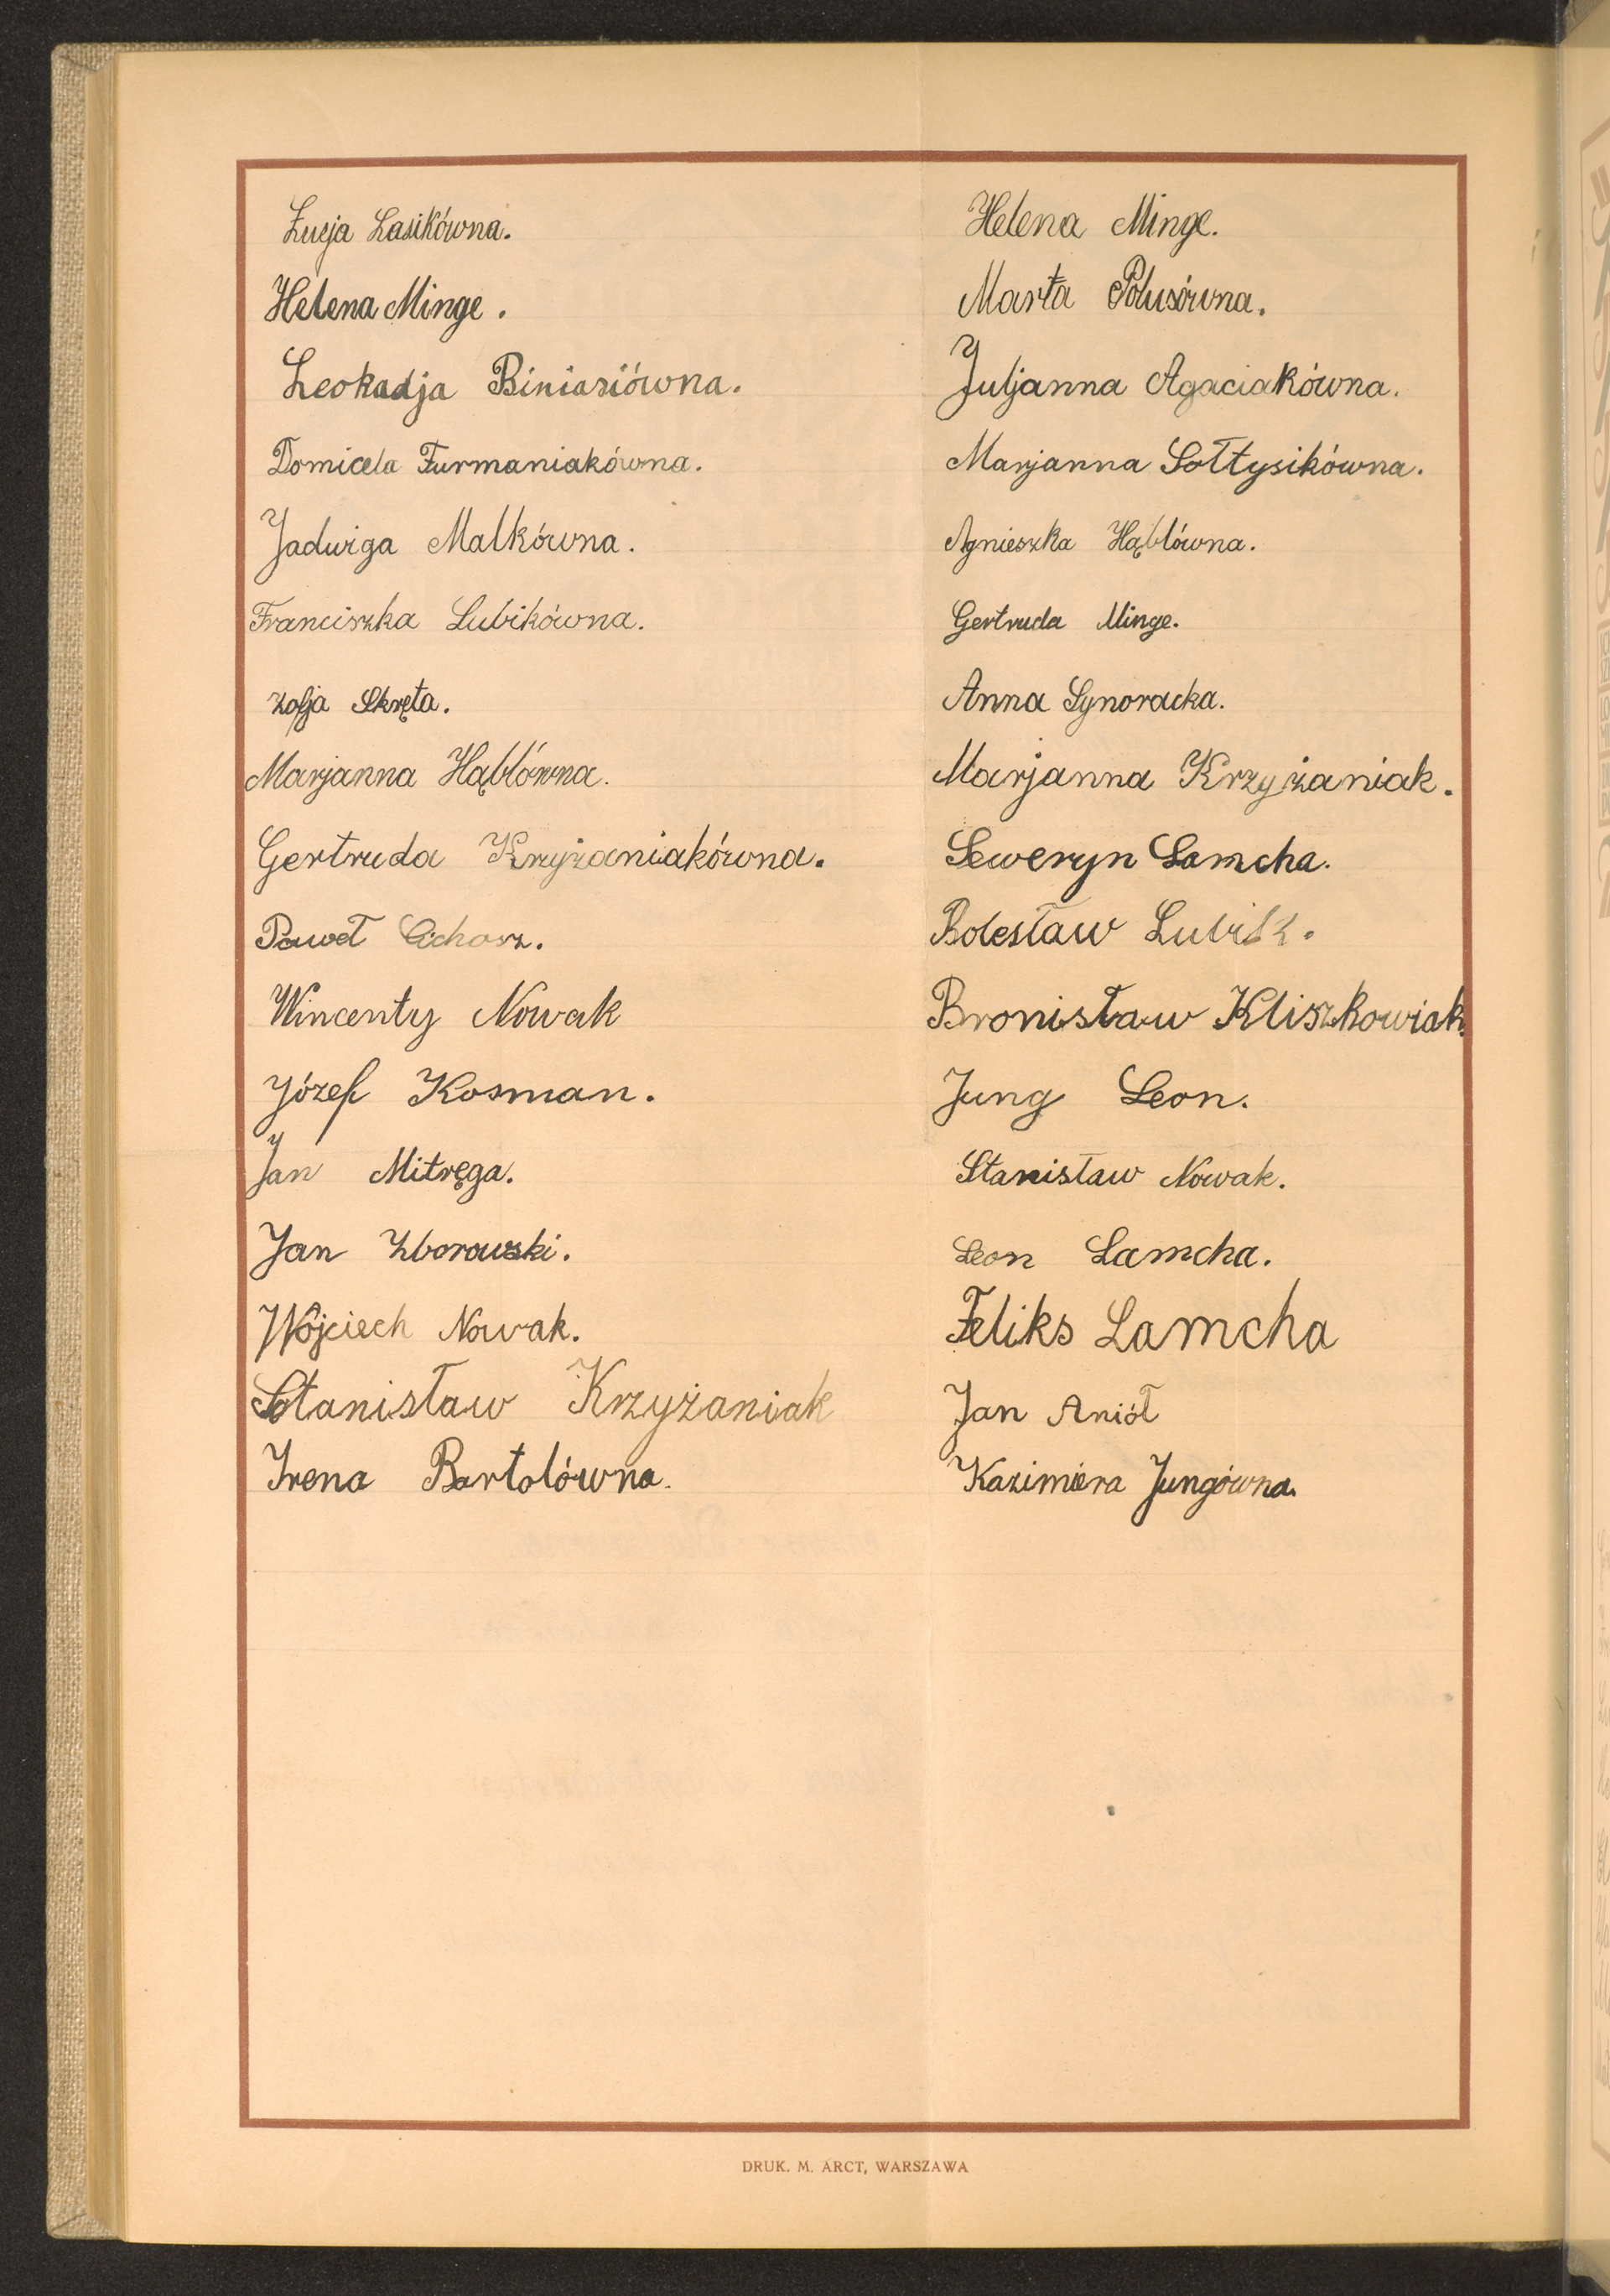 Łucja Lasikówna.
Helena Minge.
Leokadja Biniasiówna.
Domicela Furmaniakówna.
Jadwiga Malkówna.
Franciszka Lubikówna.
Zofja Skręta.
Marjanna Hąblówna.
Gertruda Krzyżaniakówna.
Paweł Cichosz.
Wincenty Nowak
Józef Kosman.
Jan Mitręga.
Jan Zborowski.
Wojciech Nowak.
Stanisław Krzyżaniak
Irena Bartolówna.
Helena Minge.
Marta Polusówna.
Juljanna Agaciakówna.
Marjanna Sołtysikówna.
Agnieszka Hąblówna.
Gertruda Minge.
Anna Synoracka.
Marjanna Krzyżaniak.
Seweryn Lamcha.
Bolesław Lubik.
Bronisław Kliszkowiak.
Jung Leon.
Stanisław Nowak.
Leon Lamcha.
Feliks Lamcha
Jan Aniół
Kazimiera Jungówna.
DRUK. M. ARCT, WARSZAWA